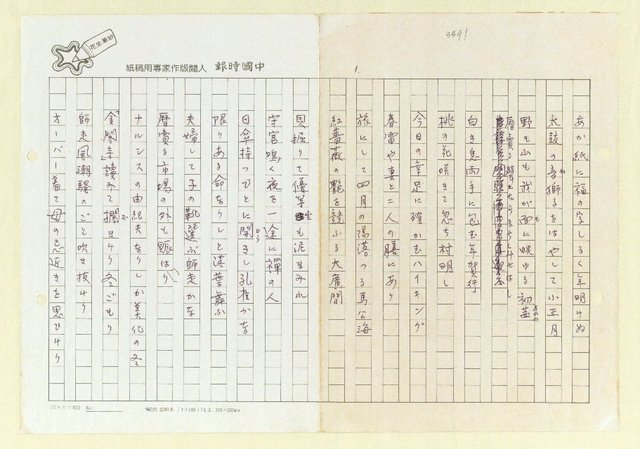 3441
1.
あか紙に福の字しるく年明けぬ
太鼓の音獅子をはやして小正月
野も山も我が函に映ゆる初茜
白き息両手に包む年賀行
桃の花咲きて忽ち村明し
今日の幸足に確かむハイキング
春雷や妻と二人の膳にあり
旅にして四月の陽落つる馬公海
紅薔薇の艶を競ふる大廣間
貝掘りて優等生も泥まみれ
守宮鳴く夜を一途に禅の人
日傘持つひとに閉ぢし孔雀かな
限りある命をうしと落葉舞ふ
夫婦して子の靴選ぶ師走かな
暦賣る市場の外も賑はり
ナルシスの由紀夫をりしか美化の冬
「金閣寺」読みて擱をけり冬ごもり
師走風潮騒のごと吹き抜けり
オーバー着て母の忌近きを思ひけり
中國時報 人間版作家專用稿紙